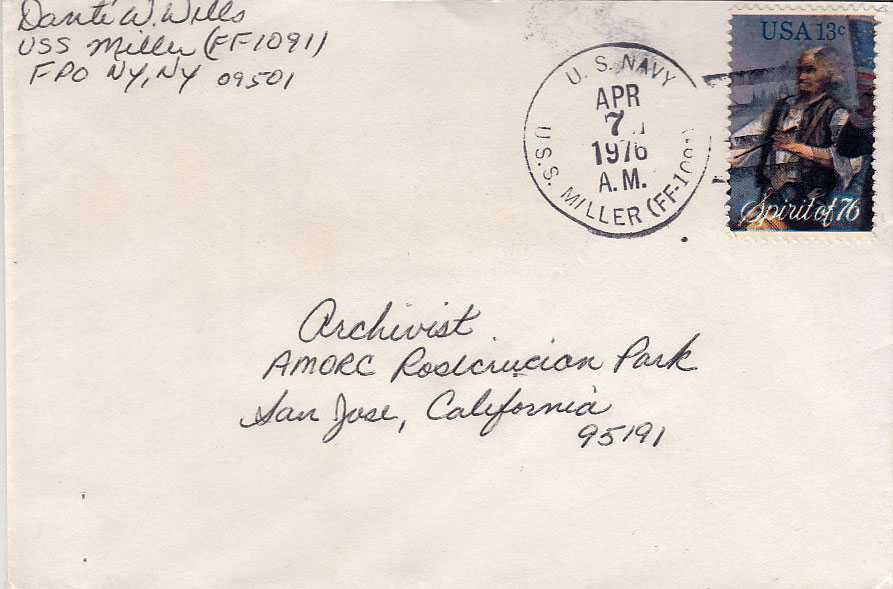 Danté W. Wills
USS Miller (FF1091)
FPO NY, NY 09501
U. S. NAVY
APR
7
1976
A.M.
U.S.S. MILLER (FF-1091)
USA 13c
Spirit of 76
Archivist
AMORC Rosicrucian Park
San Jose, California
95191